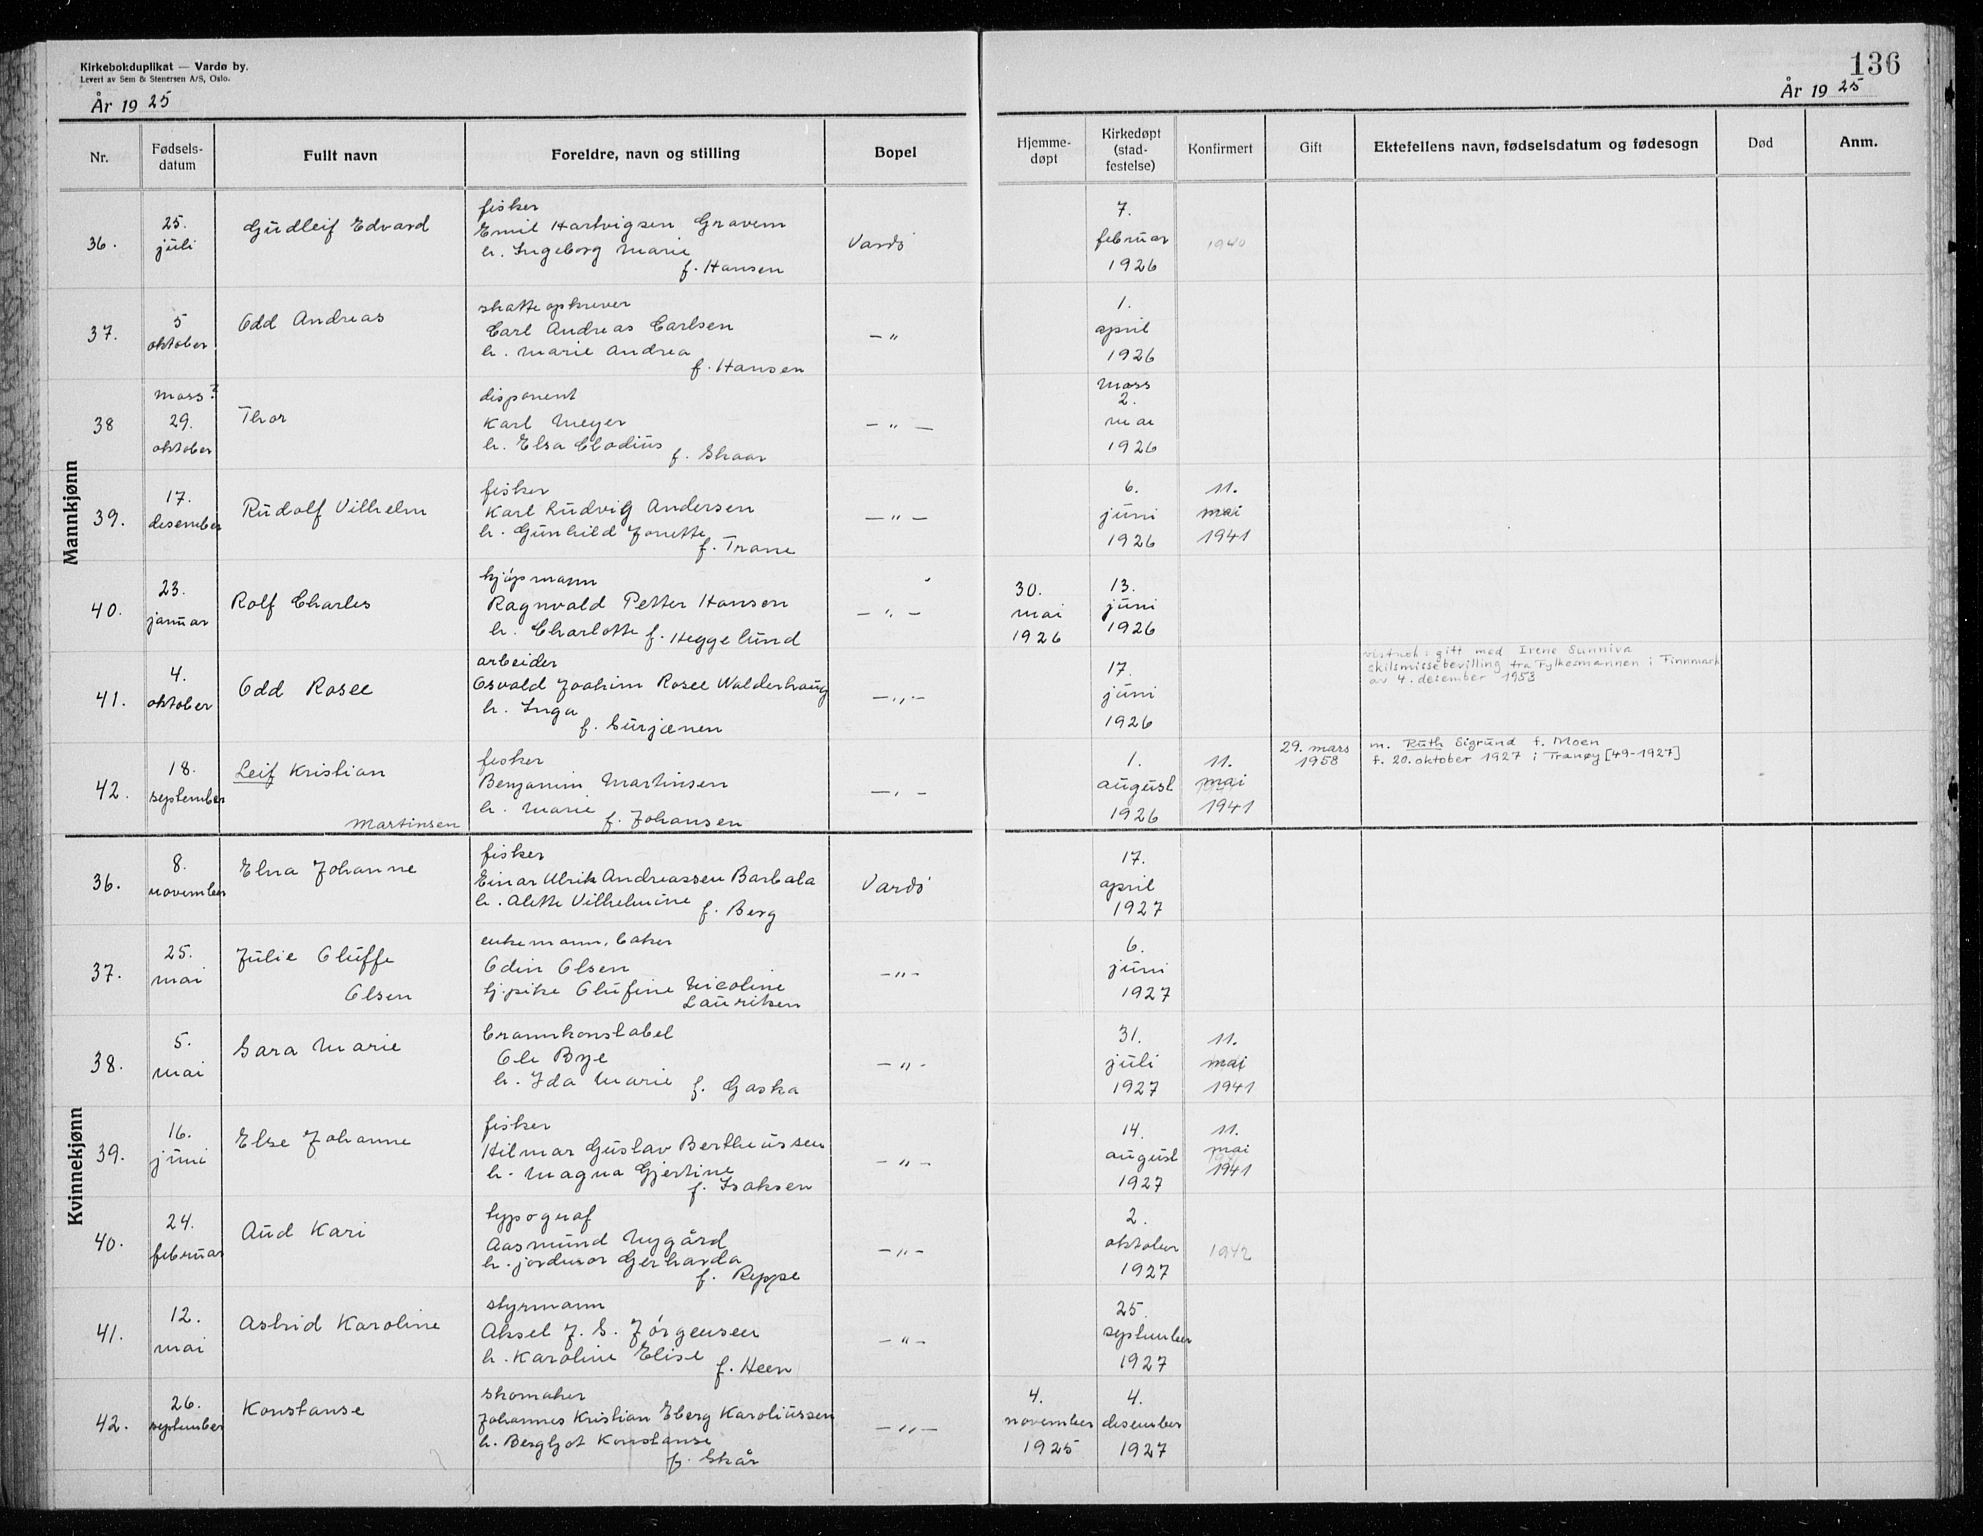 Kirkebokduplikat — Vardø by.
Levert av Sem & Stenersen A/S, Oslo.
136
År 1925
År 1925
Nr.
Fødsels-
datum
Fullt navn
Foreldre, navn og stilling
Bopel
Hjemme-
døpt
Kirkedøpt
(stad-
festelse)
Konfirmert
Gift
Ektefellens navn, fødselsdatum og fødesogn
Død
Anm.
Mannkjønn
36.
25.
juli
Gudleif Edvard
fisker
Emil Hartvigsen Gravem
h. Ingeborg Marie
f. Hansen
Vardö
7.
februar
1926
1940
37.
5
oktober
Odd Andreas
skatteopkrever
Carl Andreas Carlsen
h. Marie Andrea
f. Hansen
— "
1.
april
1926
38
mars?
29.
oktober
Thor
disponent
Karl Meyer
h. Elsa Clodius
f. Skaar
— " —
mars
2.
mai
1926
39.
17.
desember
Rudolf Vilhelm
fisker
Karl Ludvig Andersen
h. Gunhild Jonette
f. Trane
— " —
6.
juni
1926
11.
mai
1941
40.
23.
januar
Rolf Charles
kjöpmann
Ragnvald Petter Hansen
h. Charlotte f. Heggelund
— " —
30.
mai
1926
13.
juni
1926
41.
4.
oktober
Odd Rosee
arbeider
Osvald Joakim Rosee Walderhaug
h. Inga
f. Surjænen
— " —
17.
juni
1926
vistnok: gift med Irene Sunniva
skilsmissebevilling fra Fylkesmannen i Finnmark
av 4. desember 1953
42.
18.
september
Leif Kristian
Martinsen
fisker
Benjamin Martinsen
h. Marie
f. Johansen
— " —
1.
august
1926
11.
mai
1941
29. mars
1958
m. Ruth Sigrund f. Moen
f. 20. oktober 1927 i Tranøy [49-1927]
Kvinnekjønn
36.
8.
november
Elna Johanne
fisker
Einar Ulrik Andreassen Barbala
h. Alette Vilhelmine
f. Berg
Vardö
17.
april
1927
37.
25.
mai
Julie Oluffe
Olsen
enkemann, baker
Odin Olsen
tj.pike Olufine Nicoline
Lauritsen
— " —
6.
juni
1927
38.
5.
mai
Sara Marie
brannkonstabel
Ole Bye
h. Ida Marie f. Gaska
— " —
31.
juli
1927
11.
mai
1941
39.
16.
juni
Else Johanne
fisker
Hilmar Gustav Bertheussen
h. Magna Gjertine
f. Isaksen
— " —
14.
august
1927
11.
mai
1941
40.
24.
februar
Aud Kari
typograf
Aasmund Nygård
h. jordmor Gerharda
f. Reppe
— " —
2.
oktober
1927
1942
41.
12.
mai
Astrid Karoline
styrmann
Aksel J. S. Jørgensen
h. Karoline Elise
f. Heen
— " —
25.
september
1927
42.
26.
september
Konstanse
skomaker
Johannes Kristian Eberg Karoliussen
h. Bergljot Konstanse
f. Skår
— " —
4.
november
1925
4.
desember
1927